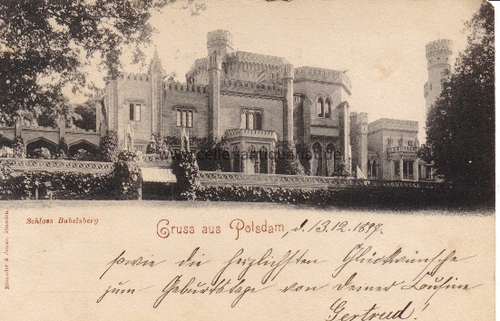 Schloss Babelsberg
Gruss aus Potsdam, d. 13.12.1897.
sowie die herzlichsten Glückwünsche
zum Geburtstage von Deiner Cousine
Gertrud!